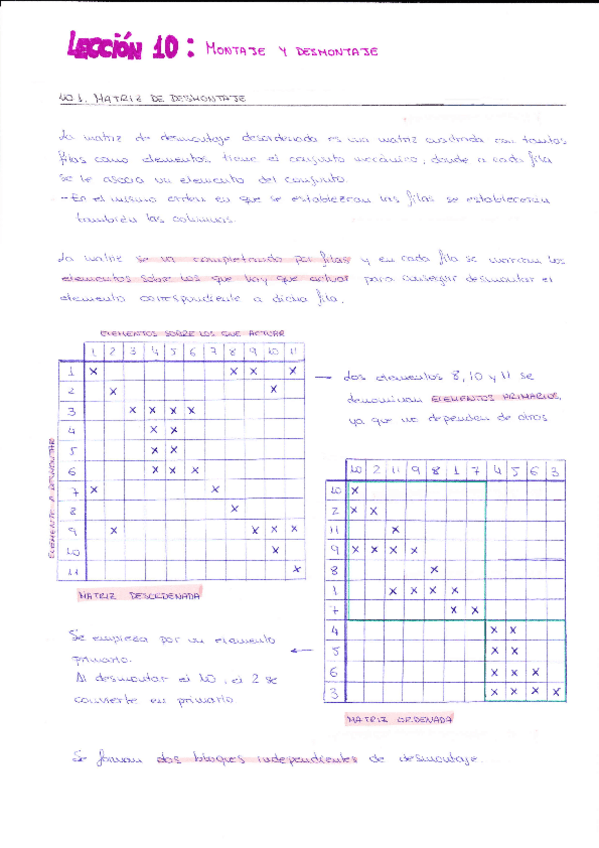 LECCIÓN 10: MONTAJE Y DESMONTAJE
10.1. MATRIZ DE DESMONTAJE
La matriz de desmontaje desordenada es una matriz cuadrada con tantas
filas como elementos tiene el conjunto mecánico, donde a cada fila
se le asocia un elemento del conjunto.
- En el mismo orden en que se establezcan las filas se establecerán
también las columnas.
La matriz se va completando por filas y en cada fila se marcan los
elementos sobre los que hay que actuar para conseguir desmontar el
elemento correspondiente a dicha fila.
ELEMENTOS SOBRE LOS QUE ACTUAR
1 2 3 4 5 6 7 8 9 10 11
ELEMENTO A DESMONTAR
1 x x x x
2 x x
3 x x x x
4 x x
5 x x
6 x x x
7 x x
8 x
9 x x x x
10 x
11 x
MATRIZ DESORDENADA
— Los elementos 8, 10 y 11 se
denominan ELEMENTOS PRIMARIOS,
ya que no dependen de otros
10 2 11 9 8 1 7 4 5 6 3
10 x
2 x x
11 x
9 x x x x
8 x
1 x x x x
7 x x
4 x x
5 x x
6 x x x
3 x x x x
MATRIZ ORDENADA
Se empieza por un elemento ←
primario.
Al desmontar el 10, el 2 se
convierte en primario
Se forman dos bloques independientes de desmontaje.